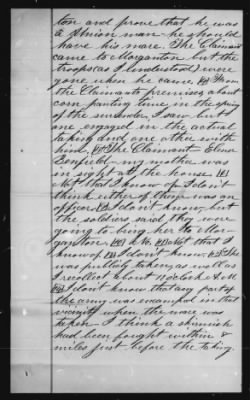 ton and prove that he was
a Union man - he should
have his mare. The Claimant
came to Morganton but the
troops (as I understood) were
gone when he came. From
the Claimants premises, about
corn planting time in the spring
of the surrender, I saw but
one engaged in the actual
taking and one other with
him. The Claimant Elmer
Benfield - my mother was
in sight at the house.
Not that I know of. I don't
think either of them was an
officer. I don't know - but
the soldiers said they were
going to bring her to Mor-
ganton. No. Not that I
know of I don't know. She
was publicly taken, as well as
I recollect about O'clock A M.
I don't know that any part of
the army was encamped in that
vicinity when the mare was
taken - I think a skirmish
had been fought within
miles just before the taking.